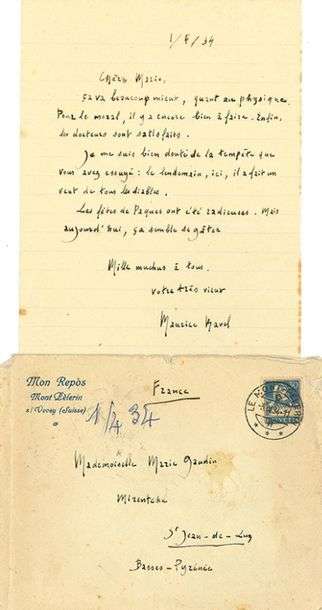 1/4/34
Chère Marie,
ça va beaucoup mieux, quant au physique.
Pour le moral, il y a encore bien à faire. Enfin,
les docteurs sont satisfaits.
Je me suis bien douté de la tempête que
vous avez essuyé : le lendemain, ici, il a fait un
vent de tous les diables.
Les fêtes de Pâques ont été radieuses. Mais
aujourd'hui, ça semble se gâter
Mille muchus à tous.
votre très vieux
Maurice Ravel
Mon Repos
Mont Pèlerin
s/ Vevey (Suisse)
France
1/4 34
LE
Mademoiselle Marie Gaudin
St Jean-de-Luz
Basses-Pyrénées